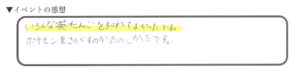 ▼イベントの感想
いろんな英たんごを知れてよかったです。
ポケモンをさがすのがたのしかったです。